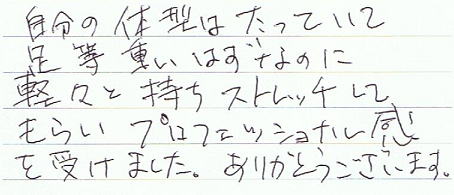 自分の体型はたっていて
足等重いはずなのに
軽々と持ちストレッチして
もらいプロフェッショナル感
を受けました。ありがとうございます。